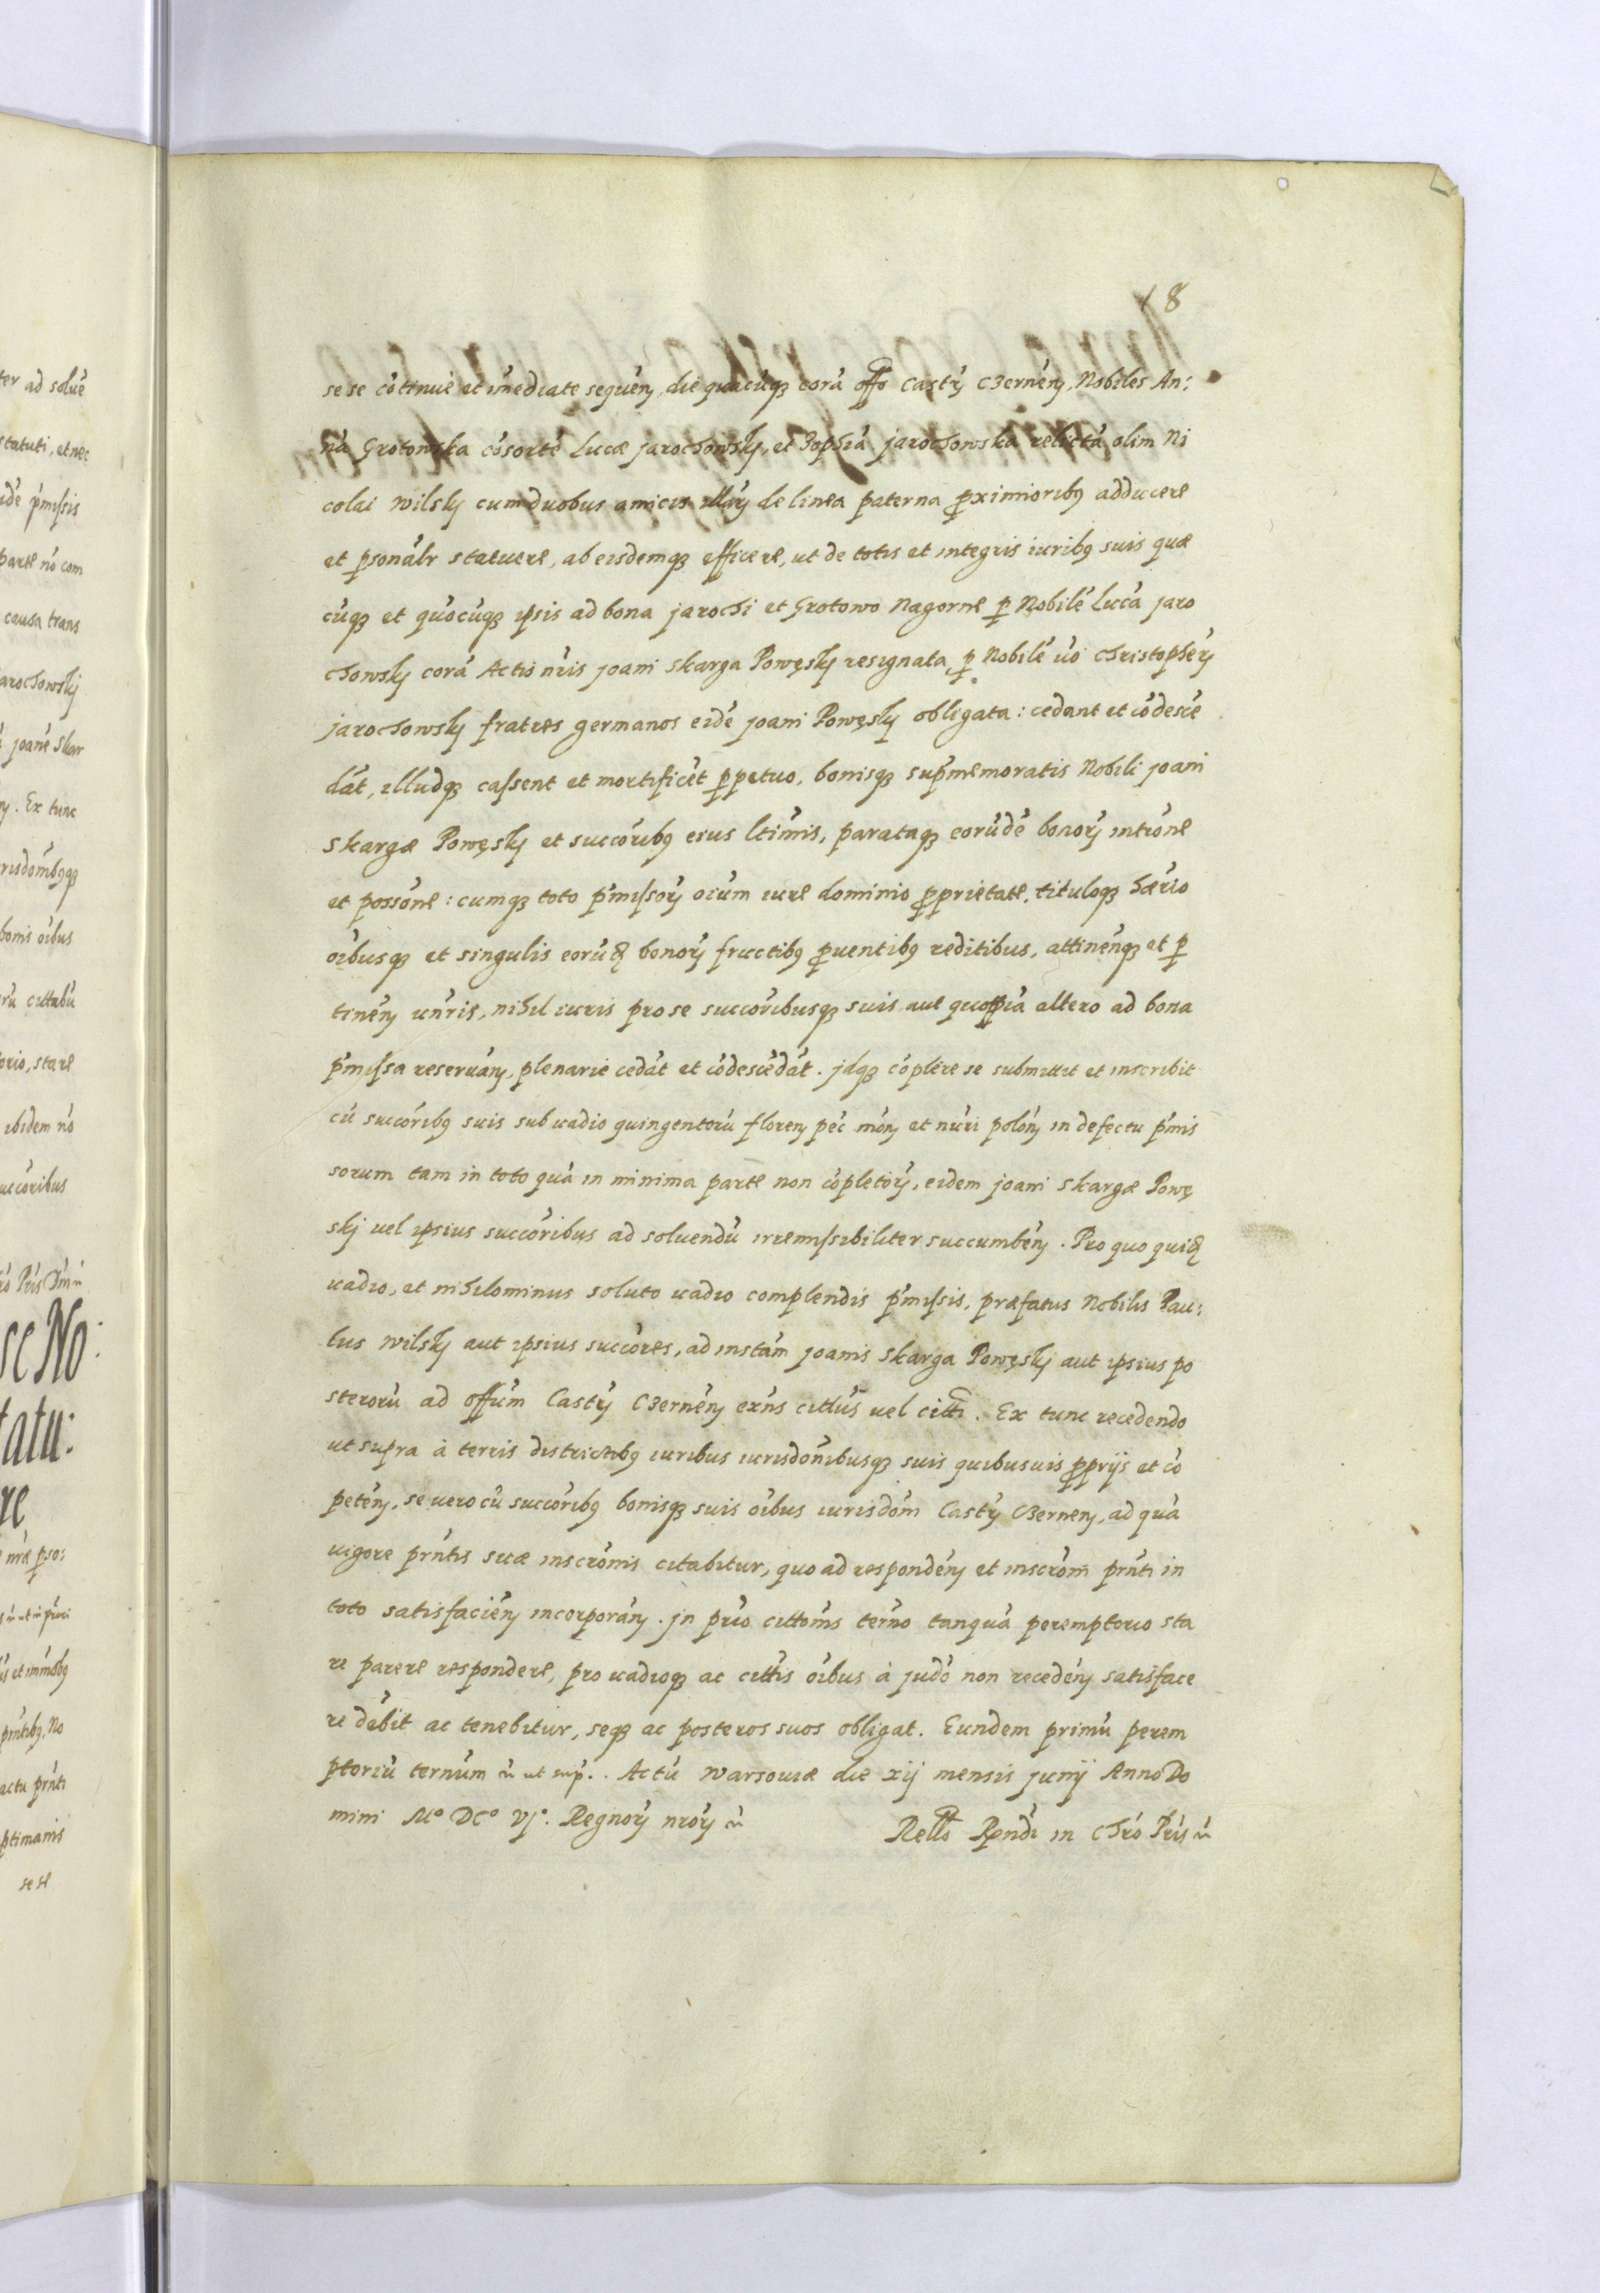 18
sese cōtinuè et im̄ediate sequeñ, die quacūq3 corā offō Castr̄ C3erneñ, Nobiles An:
nā Grotowska cōsortē Lucæ Jarochowskȷ, et Zophiā Jarochowska relictā olim Ni
colai Wilskȷ cum duobus amicis illar̄ de linea paterna ꝓximioribꝰ adducere
et ꝑsonalr̄ statuere, ab eisdemq3 efficere, ut de totis et integris iuribꝰ suis quæ
cūq3 et quocūq3 ipsis ad bona Jarochi et Grotowo Nagorne ꝑ Nobilē Lucā Jaro
chowskȷ corā Actis nr̄is Joani Skarga Powęskȷ resignata, ꝑ Nobilē v̄o Christopher̄
Jarochowskȷ fratres germanos eidē Joani Powęskȷ obligata: cedant et cōdescē
dāt, illudq3 cassent et mortificēt ꝑpetuo, bonisq3 sup̄memoratis Nobili Joani
Skargæ Powęskȷ et succōribꝰ eius l̄timis, parataq3 eorūdē bonor̄ intrōne
et possōne: cumq3 toto p̄missor̄ oīum iure dominio ꝓprietate, tituloq3 hær̄io
oībusq3 et singulis eorūd̨ bonor̄ fructibꝰ ꝓuentibꝰ reditibus, attinēnq3 et ꝑ
tineñ un̄ris, nihil iuris pro se succōribusq3 suis aut quopiā altero ad bona
p̄missa reseruañ, plenarie cedāt et cōdescēdāt. Jdq3 cōplēre se submittit et inscribit
cū succōribꝰ suis sub uadio quingentorū floreñ pec̄ moñ et nūri poloñ in defectu p̄mis
sorum tam in toto quā in minima parte non cōpletor̄, eidem Joani Skargæ Powę
skȷ uel ipsius succōribus ad soluendū irremissibiliter succumbeñ. Pro quo quid̨
uadio, et nihilominus soluto uadio complendis p̄missis, præfatus Nobilis Pau:
lus Wilskȷ aut ipsius succōres, ad instām Joanis Skarga Powęskȷ aut ipsius po
sterorū ad offūm Castr̄ C3erneñ exn̄s citt̄us uel citt̄i. Ex tunc recedendo
ut supra à terris districtibꝰ iuribus iurisdōnibusq3 suis quibusuis ꝓprijs et cō
peteñ, se uero cū succōribꝰ bonisq3 suis oībus iurisdōm Castr̄ C3erneñ, ad quā
uigore prn̄tis suæ inscrōnis citabitur, quo ad respondeñ et inscrōni prn̄ti in
toto satisfacieñ incorporañ. Jn pr̄io cittōnis ter̄no tanquā peremptorio sta
re parere respondere, pro uadioq3 ac citt̄is oībus à Jud̄o non recedeñ satisface
re dēbit ac tenebitur, seq3 ac posteros suos obligat. Eundem primū perem
ptoriū ternūm ꝛc̄ ut sup̄. Actū Warsouiæ die xij mensis Junij Anno Do
mini Mº DCº Vjº. Regnor̄ nror̄ ꝛc̄
Rell̄o Rn̄di in Chr̄o Pr̄is ꝛc̄